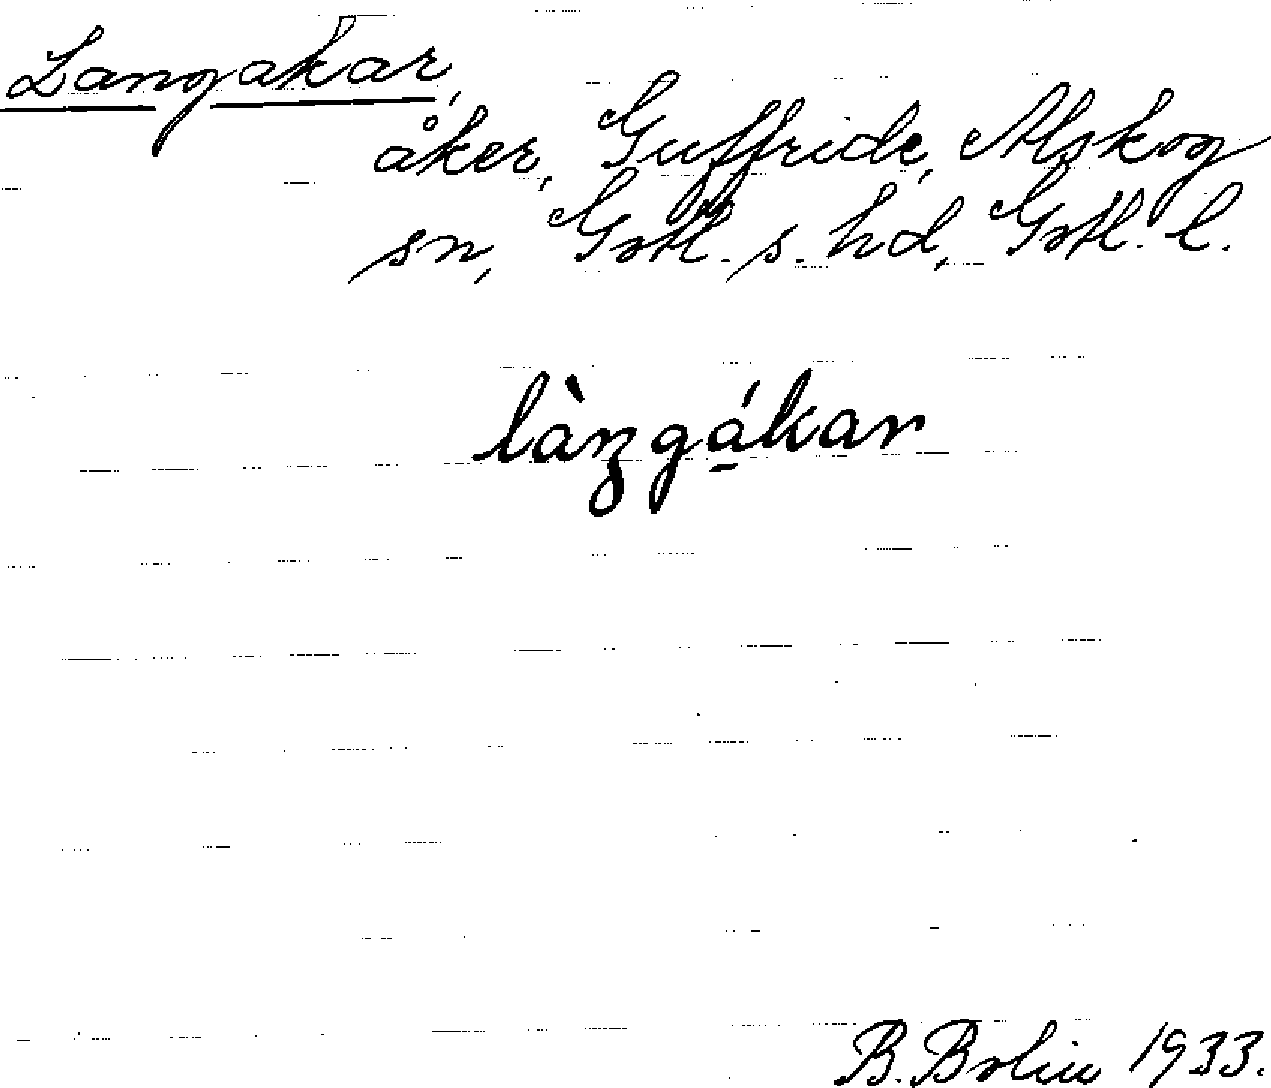 Langakar,
åker, Guffride, Alskog
sn, Gotl. s. hd, Gotl. l.
làŋgá̱kar
B. Bolin 1933.